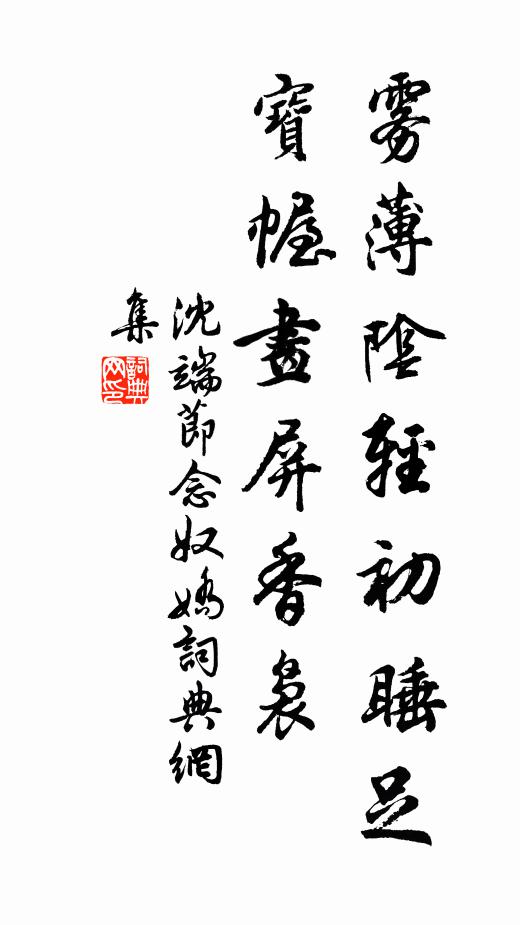 雾薄陰輕初睡足
寶幄畫屏香裊
沈端節念奴嬌詞典網
集
詞典
网印